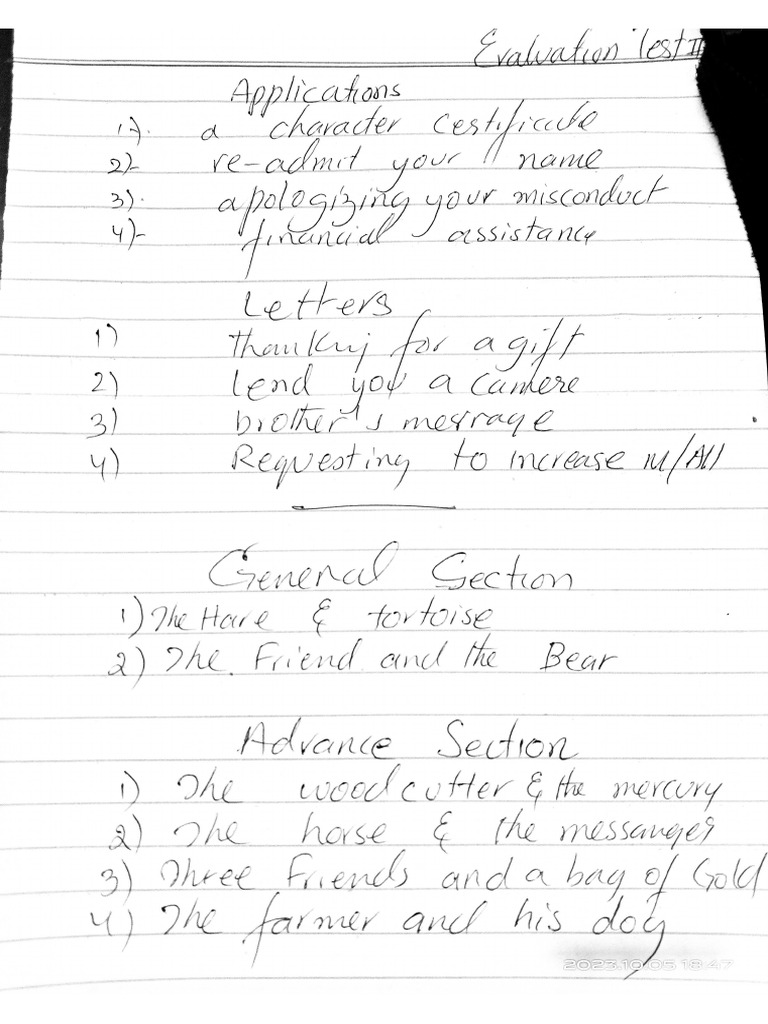 Evaluation Test II
Applications
1)- a character cestificate
2)- re-admit your name
3)- apologizing your misconduct
4)- financial assistance
Letters
1) thanking for a gift
2) lend you a camere
3) brother's message
4) Requesting to increase M/All
General Section
1) The Hare & tortoise
2) The Friend and the Bear
Advance Section
1) The wood cutter & the mercury
2) The horse & the messanger
3) Three Friends and a bag of Gold
4) The farmer and his dog
2023.10.05 18:47